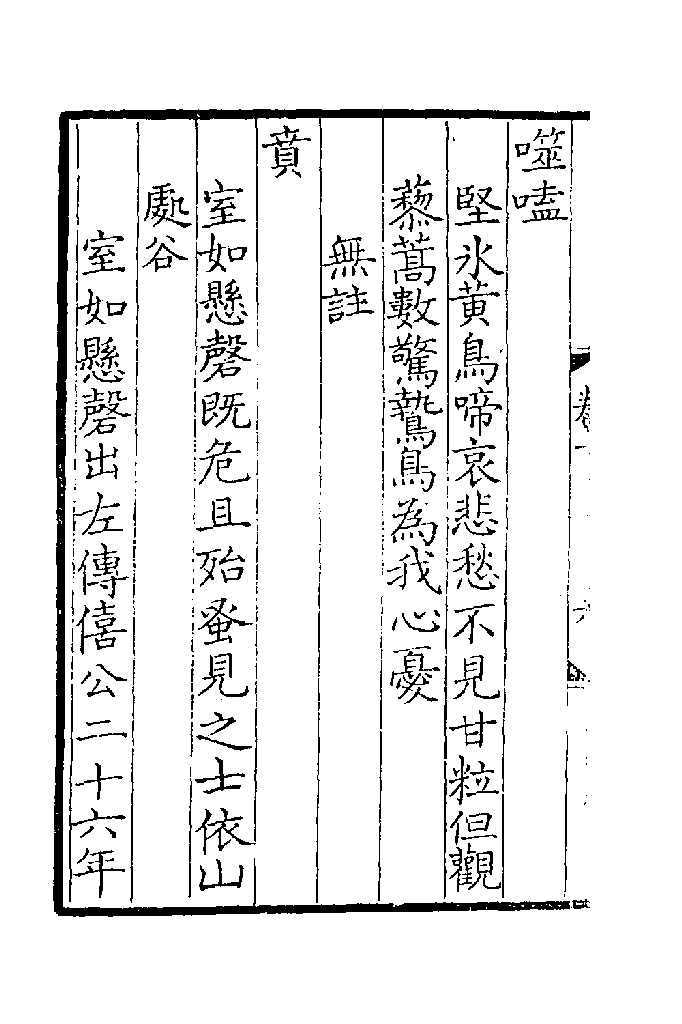 噬嗑
堅氷黄鳥啼哀悲愁不見甘粒但觀
藜蒿數驚鷙鳥為我心憂
無註
賁
室如懸磬既危且殆蚤見之士依山
處谷
室如懸磬出左傳僖公二十六年